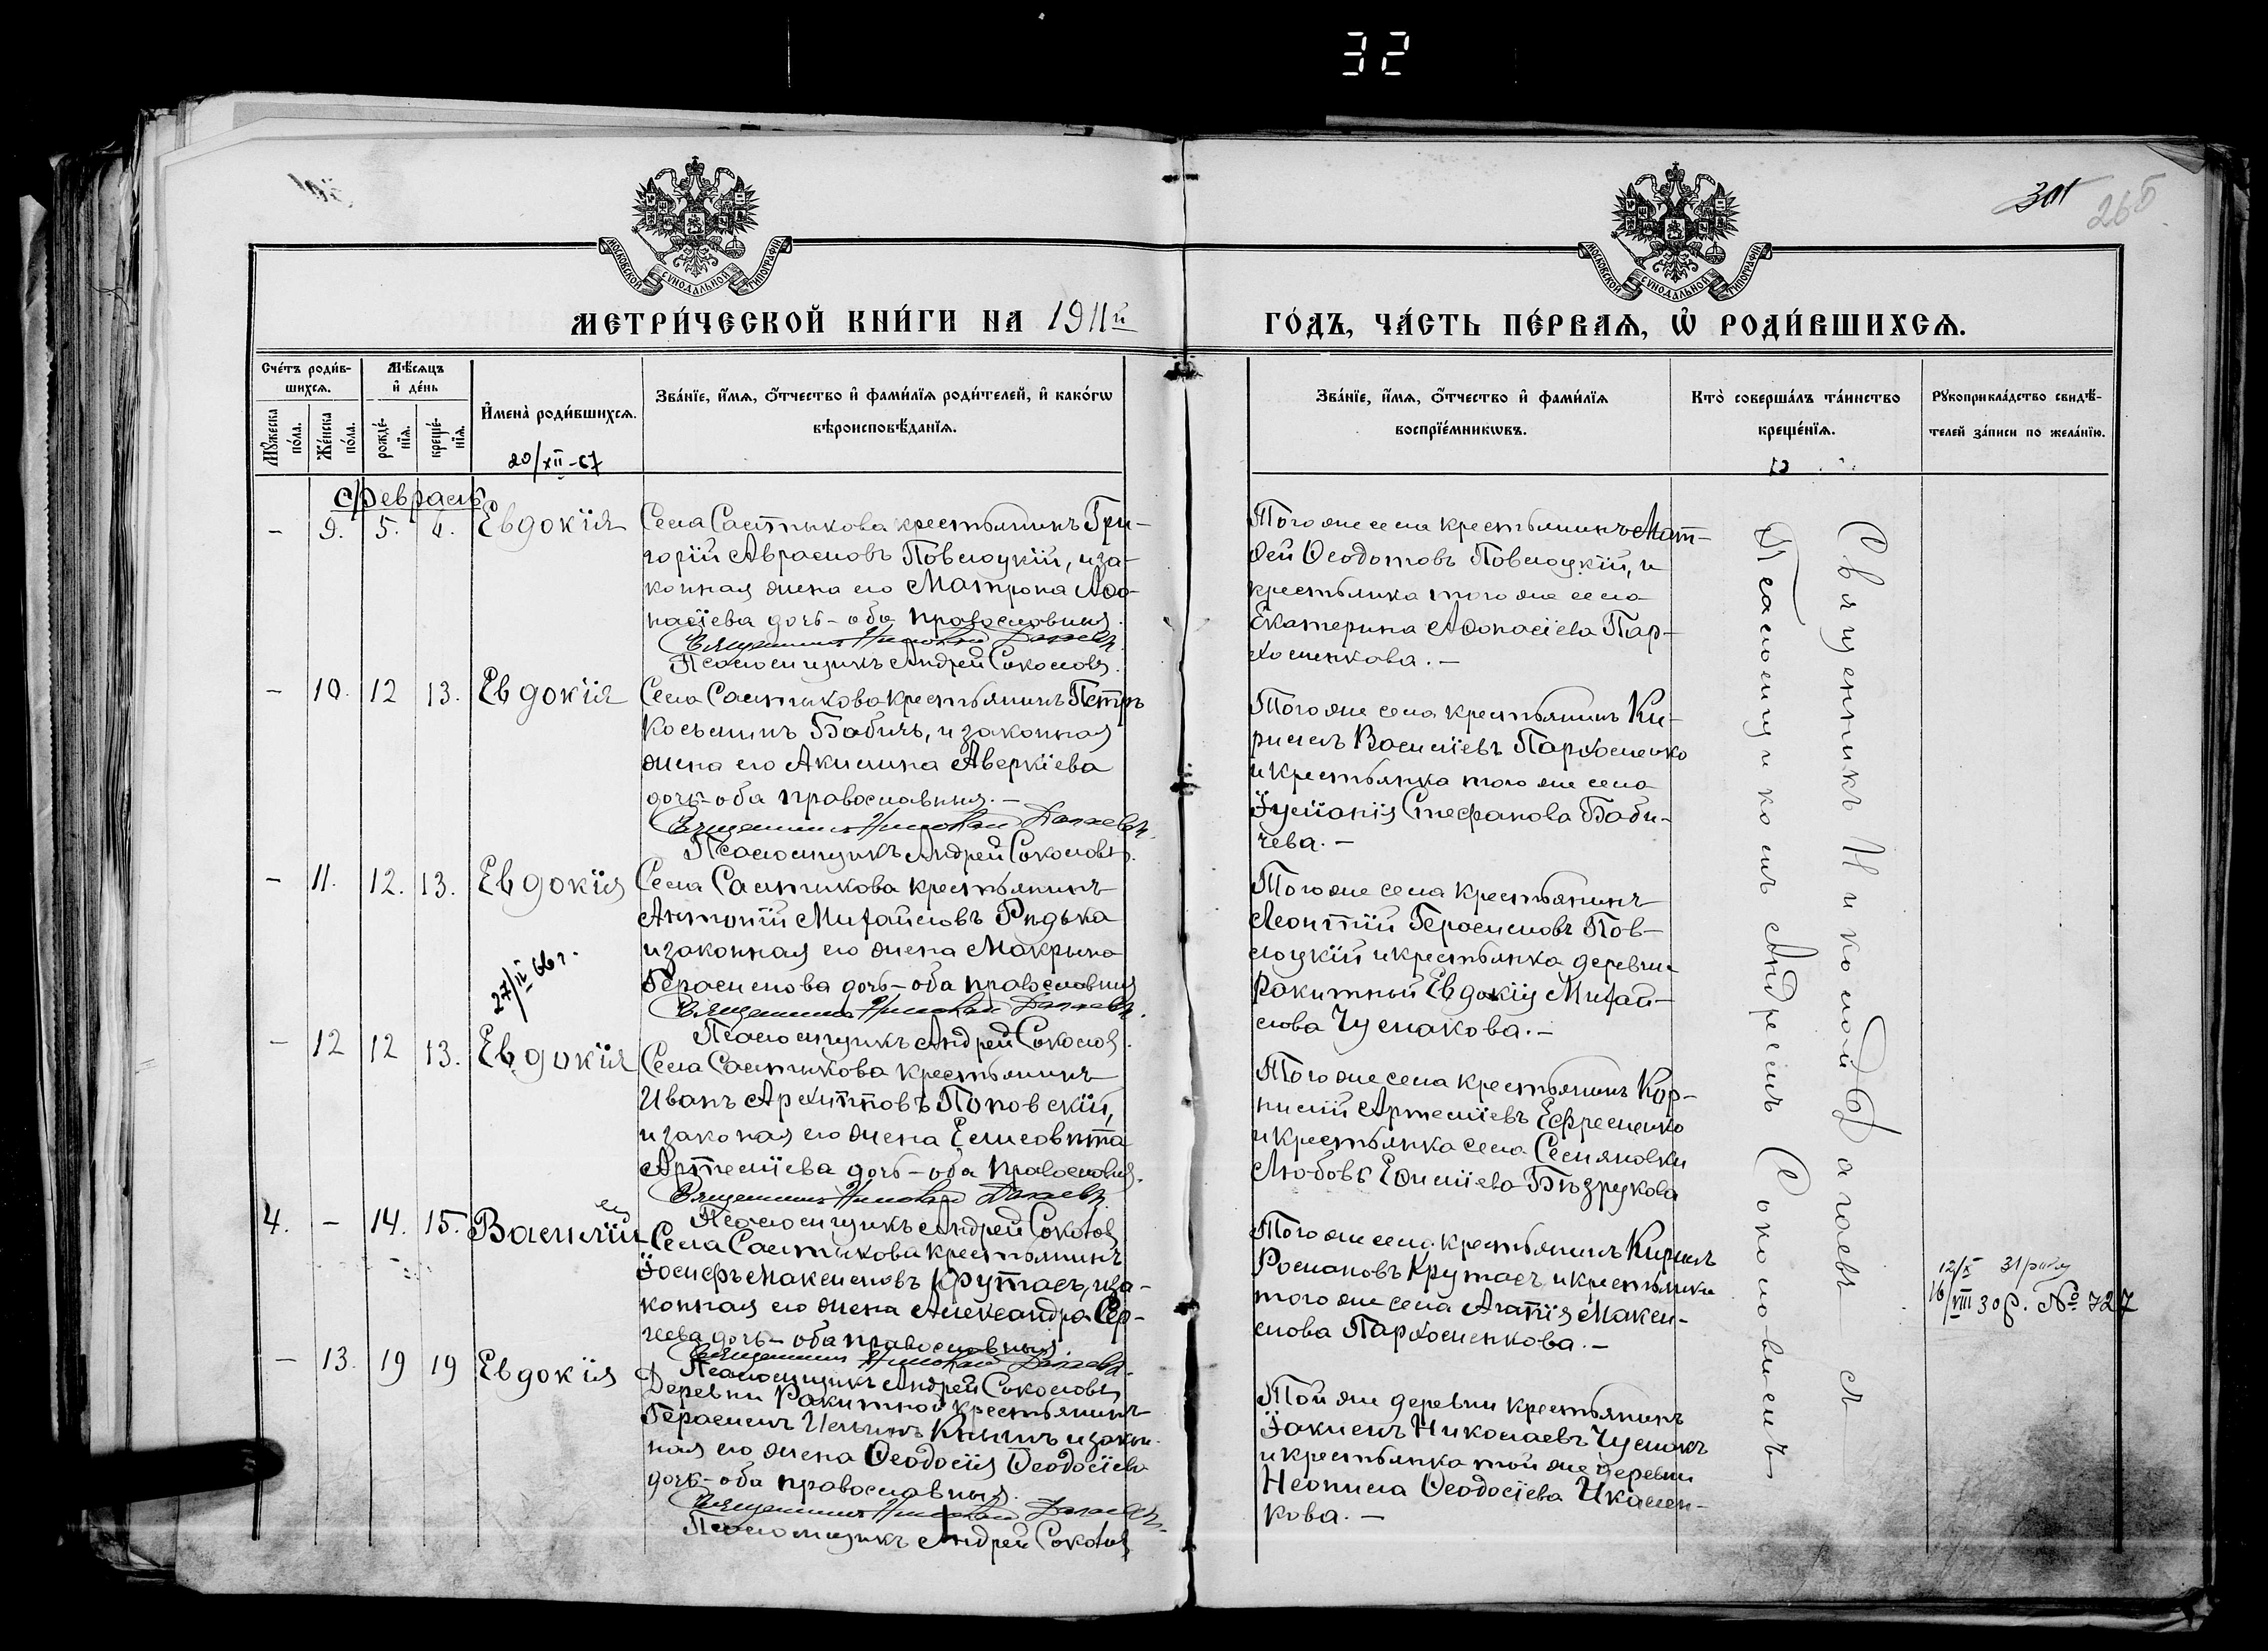 32
301
265
МОСКОВСКОЙ СУНОДАЛЬНОЙ ТИПОГРАФІИ
МОСКОВСКОЙ СУНОДАЛЬНОЙ ТИПОГРАФІИ
МЕТРИ́ЧЕСКОЙ КНИ́ГИ НА 1911й
ГО́ДЪ, ЧА́СТЬ ПЕ́РВАЯ, Ѿ РОДИ́ВШИХСЯ.
Сче́тъ роди́в-
шихся.
Мѣ́сяцъ
и де́нь
Мꙋжеска по́ла.
Же́нска по́ла.
рожде́-нїя.
креще́-нїя.
И҆мена̀ роди́вшихся.
Зва́нїе, и҆́мя, ѻ҆́тчество и҆ фами́лїя роди́телей, и҆ како́гѡ
вѣроисповѣ́данїя.
Зва́нїе, и҆́мя, ѻ҆́тчество и҆ фами́лїя
воспрїе́мникѡвъ.
Кто̀ соверша́лъ та́инство
креще́нїя.
Рꙋкоприкла́дство свидѣ́-
телей за́писи по жела́нїю.
20/XII-67
Февраль
- 9. 5. 6. Евдокія
Села Салтыкова крестьянинъ Гри-
горій Авраамовъ Повлоцкій, и за-
конная жена его Матрона Аѳа-
насіева дочь - оба православныя.
Священникъ Николай
Псаломщикъ Андрей Соколовъ.
Того же села крестьянинъ Мат-
ѳей Ѳеодотовъ Повлоцкій, и
крестьянка того же села
Екатерина Аѳонасіева Пар-
хоменкова. -
- 10. 12 13. Евдокія
Села Салтыкова крестьянинъ Петръ
Косьминъ Бабичъ, и законная
жена его Акилина Аверкіева
дочь - оба православныя. -
Священникъ Николай
Псаломщикъ Андрей Соколовъ.
Того же села крестьянинъ Ки-
риллъ Василіевъ Пархоменко
и крестьянка того же села
Іуліанія Стефанова Баби-
чева. -
- 11. 12. 13. Евдокія
Села Салтыкова крестьянинъ
Антоній Михайловъ Рядька
и законная его жена Макрина
Герасимова дочь - оба православныя
Священникъ Николай
Псаломщикъ Андрей Соколовъ.
Того же села крестьянинъ
Леонтій Герасимовъ Пов-
лоцкій и крестьянка деревни
Ракитной Евдокія Михай-
лова Чумакова. -
27/II 66 г.
- 12 12 13. Евдокія
Села Салтыкова крестьянинъ
Иванъ Архипповъ Поповскій,
и законая его жена Елисавета
Артеміева дочь - оба православныя.
Священникъ Николай
Псаломщикъ Андрей Соколовъ
Того же села крестьянинъ Кор-
нилій Артеміевъ Ефременко
и крестьянка села Семяновки
Любовь Евѳиміева Безрукова
4. - 14. 15. Василій
Села Салтыкова крестьянинъ
Іосифъ Максимовъ Крутась, и за-
конная его жена Александра Сер-
геева дочь - оба православныя.
Священникъ Николай
Псаломщикъ Андрей Соколовъ
Того же села крестьянинъ Кириллъ
Романовъ Крутась и крестьянка
того же села Агапія Макси-
мова Пархоменкова. -
12/X 31 року
16/VIII 30 р. № 727
- 13. 19 19 Евдокія
Деревни Ракитной крестьянинъ
Герасимъ Ильинъ и закон-
ная его жена Ѳеодосія Ѳеодосіева
дочь - оба православныя.
Священникъ Николай
Псаломщикъ Андрей Соколовъ
Той же деревни крестьянинъ
Іакимъ Николаевъ Чумакъ
и крестьянка той же деревни
Неонила Ѳеодосіева
кова. -
Священникъ Николай съ
Псаломщикомъ Андреемъ Соколовымъ